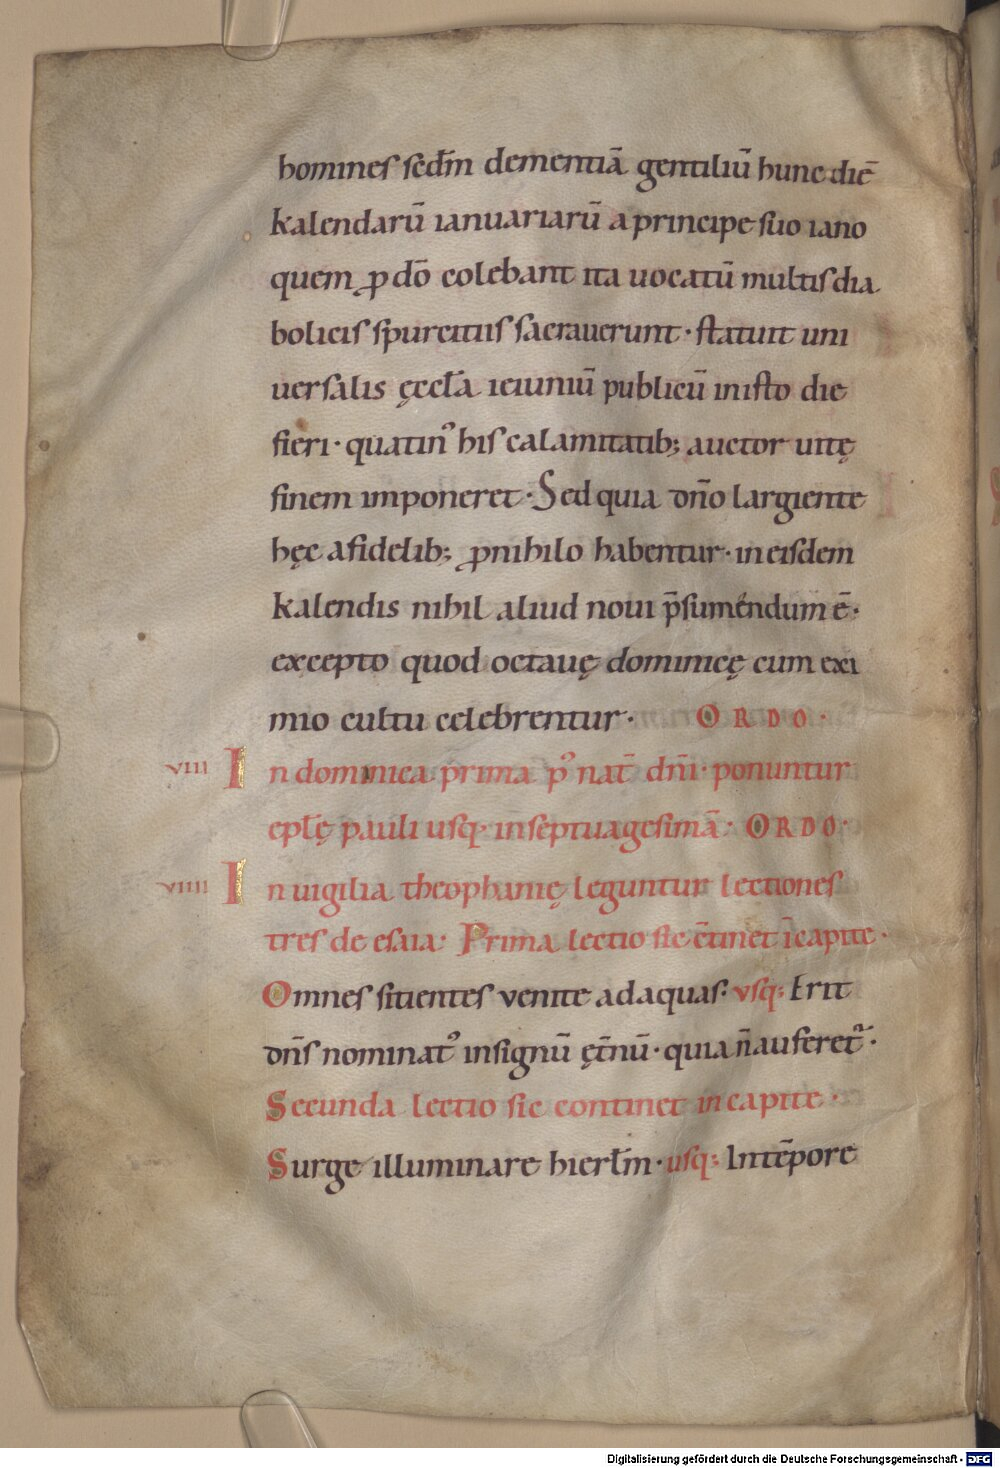 homines sedm̄ dementiā gentiliū hunc diē
kalendarū ianuariarū a principe suo iano
quem ꝓ dō colebant ita uocatū multis dia
bolicis spurcitiis sacrauerunt · statuit uni
uersalis ęccƚa ieiuniū publicū in isto die
fieri · quatin᾿ his calamitatib; auctor uitę
finem imponeret · Sed quia dn̄o largiente
hęc a fidelib; ꝓ nihilo habentur · in eisdem
kalendis nihil aliud noui p̄sumendum ē ·
excepto quod octauę dominicę cum exi
mio cultu celebrentur · ORDO ·
VIII In dominica prima p᾿ nat̄ dn̄i · ponuntur
epƚę pauli usq; in septuagesimā · ORDO ·
VIIII In uigilia theophanię leguntur lectiones
tres de esaia · Prima lectio sic c̄tinet ī capite ·
Omnes sitientes venite ad aquas · vsq; Erit
dn̄s nominat᾿ in signū ęt̄nū · quia n̄ auferet᷑ ·
Secunda lectio sic continet in capite ·
Surge illuminare hierƚm · usq; In tēpore
Digitalisierung gefördert durch die Deutsche Forschungsgemeinschaft - DFG